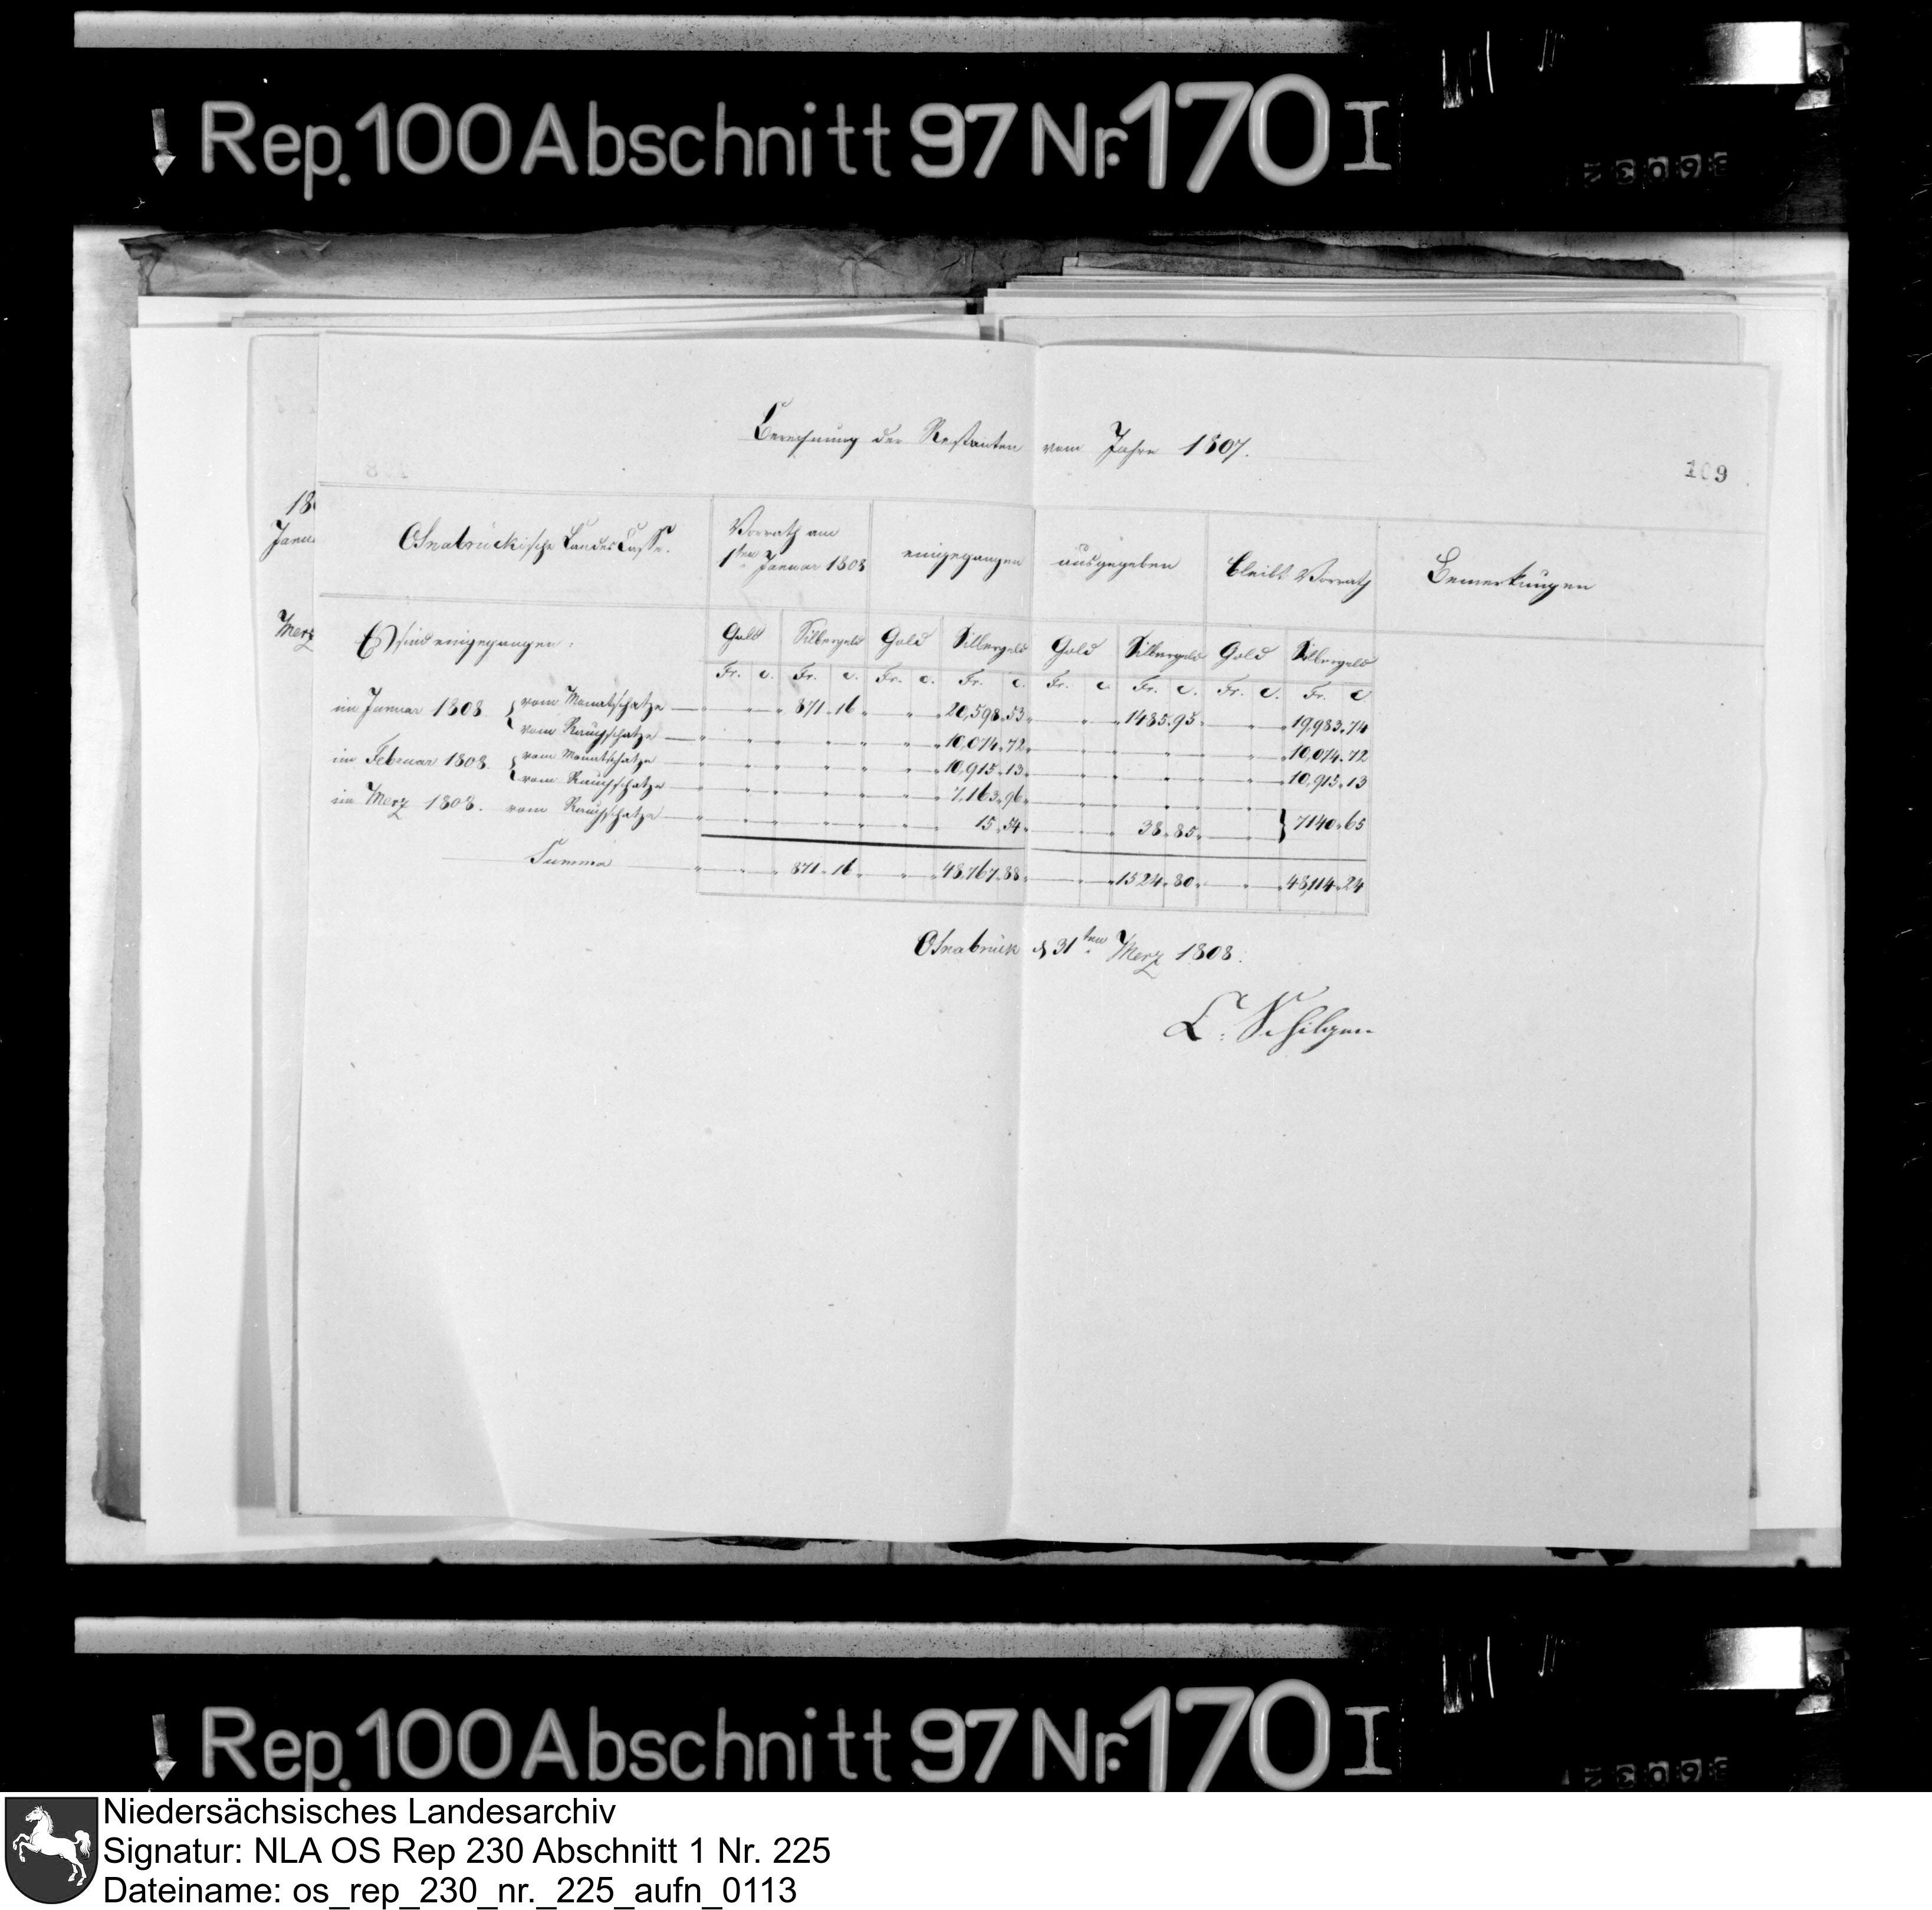 Rep. 100 Abschnitt 97 Nr. 170 I
Berechnung der Restanten vom Jahre 1807.
109
Osnabrückische LandesCasse.
Vorrath am
1ten Januar 1808
eingegangen
ausgegeben
bleibt Vorrath
Bemerkungen
Merz
Es sind eingegangen:
Gold Silbergeld Gold Silbergeld Gold Silbergeld Gold Silbergeld
Fr. c. Fr. c. Fr. c. Fr. c. Fr. c. Fr. c. Fr. c. Fr. c.
im Januar 1808. { vom Monatschatze 871 16 20,598 53 1485 95 19,983 74
vom Rauchschatze 10,074 72 10,074 72
im Februar 1808. { vom Monatschatze 10,915 13 10,915 13
vom Rauchschatze 7,163 96
im Merz 1808. vom Rauchschatze 15 54 38 85 } 7140 65
Summa 871 16 48,767 88 1524 80 48,114 24
Osnabrück d 31ten Merz 1808.
C. Schilgen
Rep. 100 Abschnitt 97 Nr. 170 I
Niedersächsisches Landesarchiv
Signatur: NLA OS Rep 230 Abschnitt 1 Nr. 225
Dateiname: os_rep_230_nr._225_aufn_0113